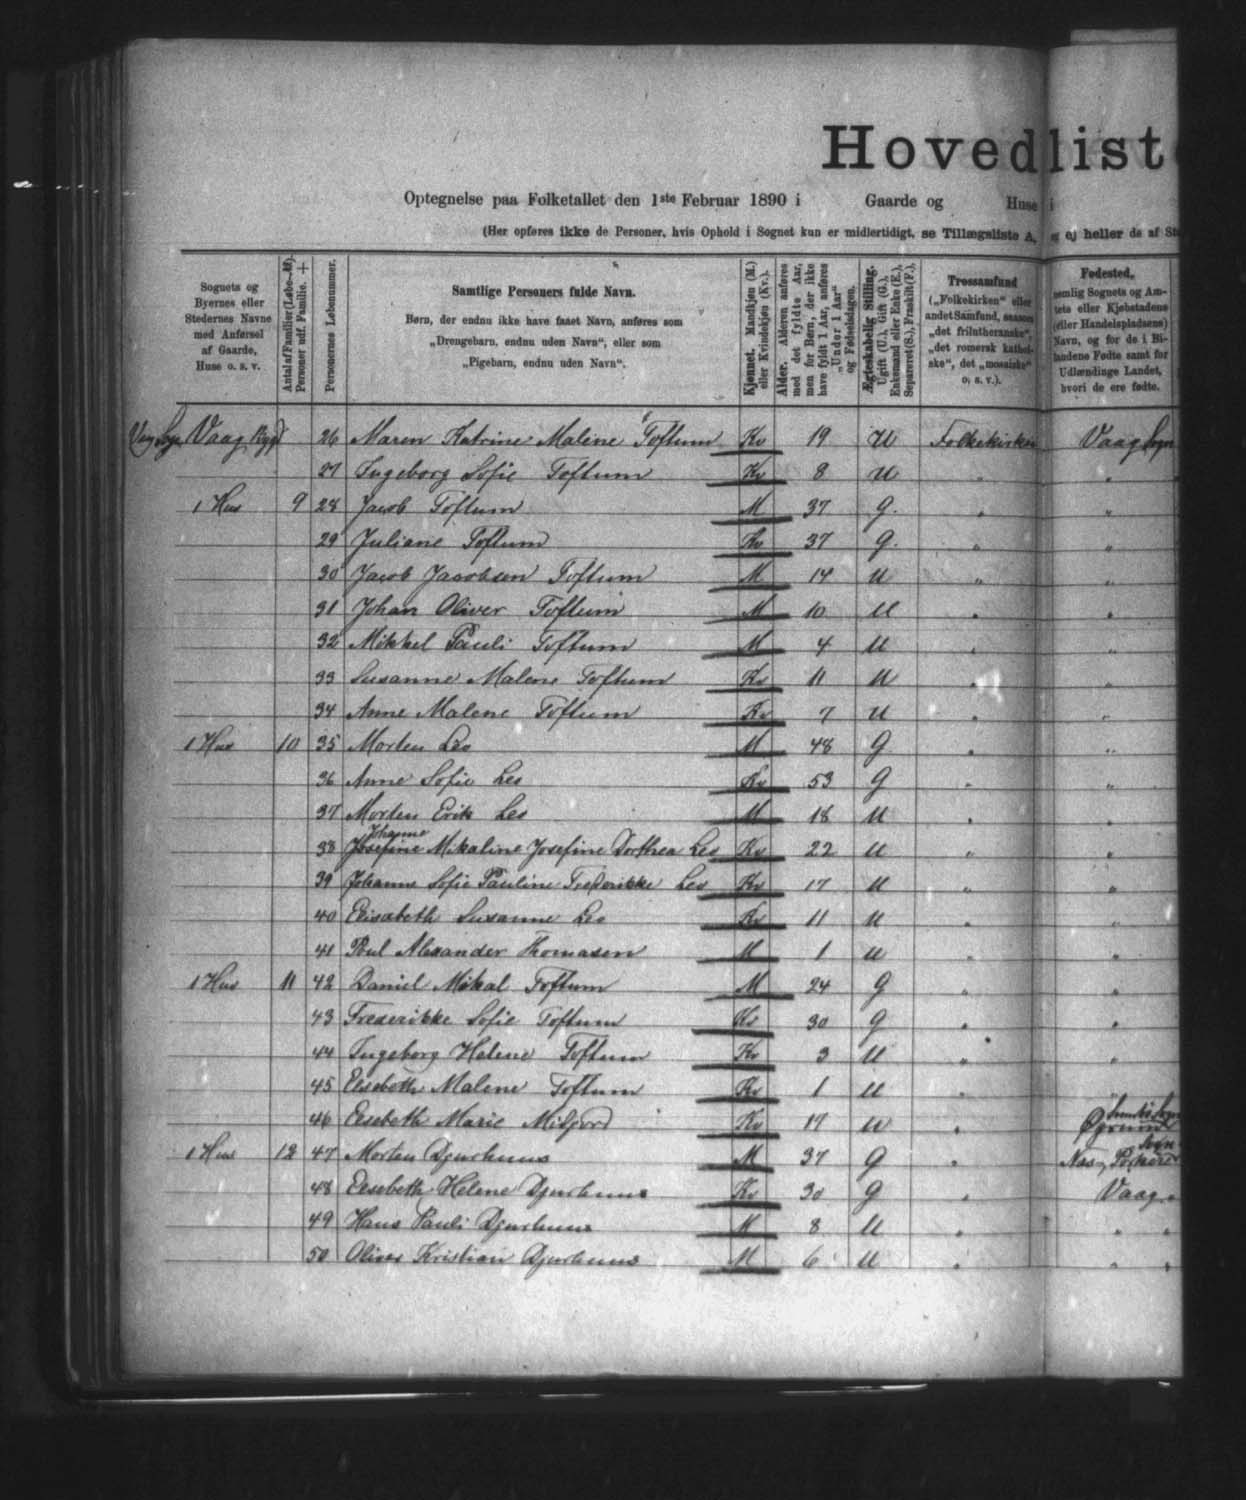 Hovedliste
Optegnelse paa Folketallet den 1ste Februar 1890 i Gaarde og Huse i
(Her opføres ikke de Personer, hvis Ophold i Sognet kun er midlertidigt, se Tillægsliste A, og ej heller de af
Sognets og Byernes eller Stedernes Navne med Anførsel af Gaarde, Huse o. s. v.
Antal af Familier (Løbe-№). Personer udf. Familie. +
Personernes Løbenummer.
Samtlige Personers fulde Navn.
Børn, der endnu ikke have faaet Navn, anføres som
„Drengebarn, endnu uden Navn“, eller som
„Pigebarn, endnu uden Navn“.
Kjønnet. Mandkjøn (M.) eller Kvindekjøn (Kv.).
Alder. Alderen anføres med det fyldte Aar, men for Børn, der ikke have fyldt 1 Aar, anføres „Under 1 Aar“ og Fødselsdagen.
Ægteskabelig Stilling. Ugift (U.), Gift (G.), Enkemand eller Enke (E.), Separeret (S.), Fraskilt (F.).
Trossamfund („Folkekirken“ eller andet Samfund, saasom „det frilutheranske“, „det romersk katholske“, det „mosaiske“ o. s. v.).
Fødested, nemlig Sognets og Amtets eller Kjøbstadens (eller Handelspladsens) Navn, og for de i Bilandene Fødte samt for Udlændinge Landet, hvori de ere fødte.
Vaag Sogn Vaag Bygd 26 Maren Katrine Maline Toftum Kv 19 U Folkekirken Vaag Sogn
27 Ingeborg Sofie Toftum Kv 8 U " "
1 Hus 9 28 Jacob Toftum M 37 G. " "
29 Juliane Toftum Kv 37 G. " "
30 Jacob Jacobsen Toftum M 14 U " "
31 Johan Oliver Toftum M 10 U " "
32 Mikkel Pauli Toftum M 4 U " "
33 Susanne Malene Toftum Kv 11 U " "
34 Anne Malene Toftum Kv 7 U " "
1 Hus 10 35 Morten Les M 48 G " "
36 Anne Sofie Les Kv 53 G " "
37 Morten Erik Les M 18 U " "
Johanne
38 Josefine Mikaline Josefine Dorthea Les Kv 22 U " "
39 Johanne Sofie Pauline Frederikke Les Kv 17 U " "
40 Elisabeth Susanne Les Kv 11 U " "
41 Poul Alexander Thomasen M 1 U " "
1 Hus 11 42 Daniel Mikal Toftum M 24 G " "
43 Frederikke Sofie Toftum Kv 30 G " "
44 Ingeborg Helene Toftum Kv 3 U " "
45 Elsebeth Malene Toftum Kv 1 U " "
46 Elsebeth Marie Midjord Kv 17 U "
1 Hus 12 47 Morten Djurhuus M 37 G " Næs
48 Elsebeth Helene Djurhuus Kv 30 G " Vaag "
49 Hans Pauli Djurhuus M 8 U " " "
50 Oliver Kristian Djurhuus M 6 U " " "